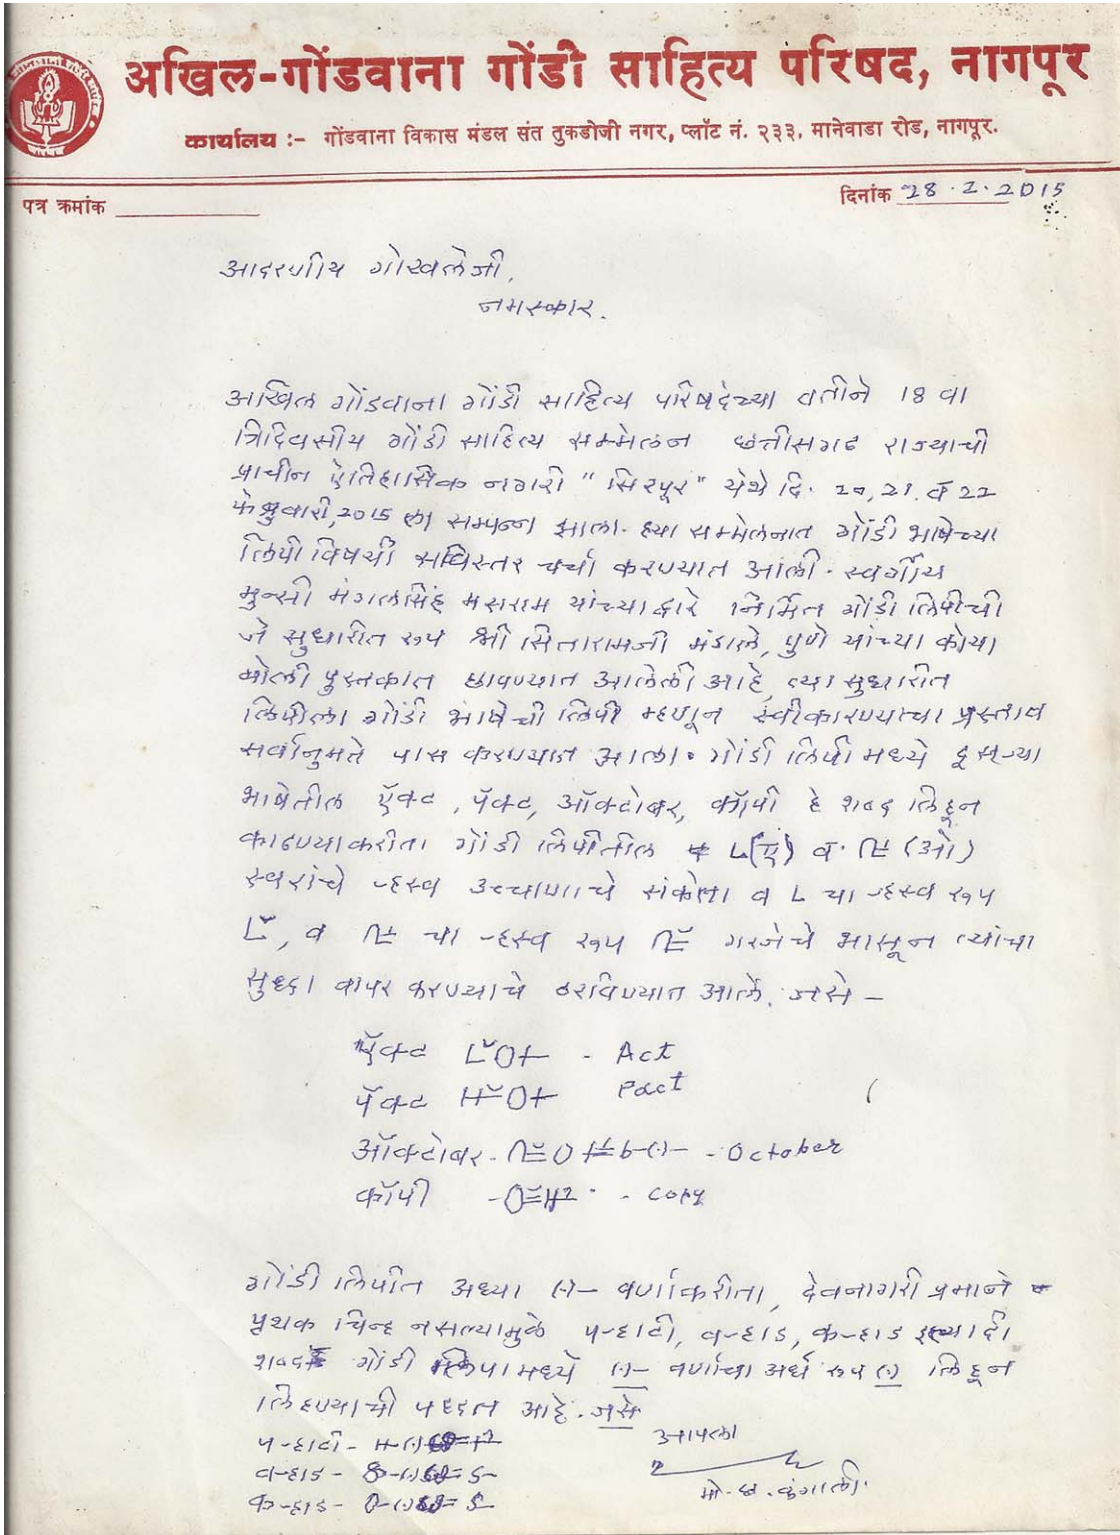 अखिल-गोंडवाना गोंडी साहित्य परिषद, नागपूर
कार्यालय :- गोंडवाना विकास मंडल संत तुकडोजी नगर, प्लॉट नं. २३३, मानेवाडा रोड, नागपूर.
पत्र क्रमांक
दिनांक 28.2.2015
आदरणीय गोखलेजी,
नमस्कार.
अखिल गोंडवाना गोंडी साहित्य परिषदेच्या वतीने 18 वा
त्रिदिवसीय गोंडी साहित्य सम्मेलन छत्तीसगढ राज्याची
प्राचीन ऐतिहासिक नगरी "सिरपूर" येथे दि. 20, 21. व 22
फेब्रुवारी, 2015 ला सम्पन्न झाला. ह्या सम्मेलनात गोंडी भाषेच्या
लिपी विषयी सविस्तर चर्चा करण्यात आली. स्वर्गीय
मुन्सी मंगलसिंह मसराम यांच्याद्वारे निर्मित गोंडी लिपीची
जे सुधारीत रूप श्री सितारामजी मंडाले, पुणे यांच्या कोया
बोली पुस्तकात छापण्यात आलेली आहे, त्या सुधारीत
लिपीला गोंडी भाषेची लिपी म्हणून स्वीकारण्याचा प्रस्ताव
सर्वानुमते पास करण्यात आला. गोंडी लिपी मध्ये दूसऱ्या
भाषेतील ऍक्ट, पॅक्ट, ऑक्टोबर, कॉपी हे शब्द लिहून
काढण्याकरीता गोंडी लिपीतील (ए) व (ओ)
स्वरांचे ऱ्हस्व उच्चाणाचे संकेत व चा ऱ्हस्व रूप
, व चा ऱ्हस्व रूप गरजेचे भासून त्यांचा
सुध्दा वापर करण्याचे ठरविण्यात आले. जसे -
ऍक्ट - Act
पॅक्ट Pact
ऑक्टोबर - - October
कॉपी - copy
गोंडी लिपीत अध्या वर्णाकरीता, देवनागरी प्रमाने
पृथक चिन्ह नसल्यामुळे पऱ्हाटी, वऱ्हाड, कऱ्हाड इत्यादी
शब्द गोंडी लिपी मध्ये वर्णाचा अर्ध रूप लिहून
लिहण्याची पध्दत आहे. जसे
पऱ्हाटी -
वऱ्हाड -
कऱ्हाड -
आपला
मो. छ. कुंगाली.